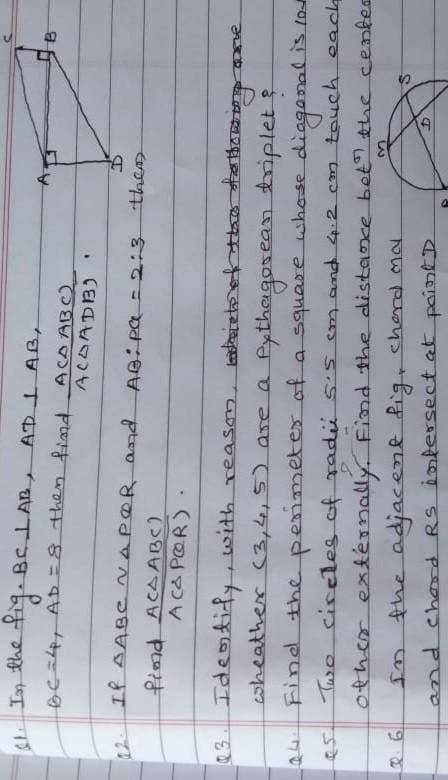 Q1. In the fig. BC ⊥ AB, AD ⊥ AB,
BC = 4, AD = 8 then find A(△ABC)/A(△ADB).
C
B
A
D
Q2. If △ABC ~ △PQR and AB:PQ = 2:3 then
find A(△ABC)/A(△PQR).
Q3. Identify, with reason, which of the following are
wheather (3,4,5) are a Pythagorean triplet?
Q4. Find the perimeter of a square whose diagonal is
Q5 Two circles of radii 5.5 cm and 4.2 cm touch each
other externally. Find the distance betn the center
Q.6 In the adjacent fig. chord
and chord RS intersect at point D
M
S
D